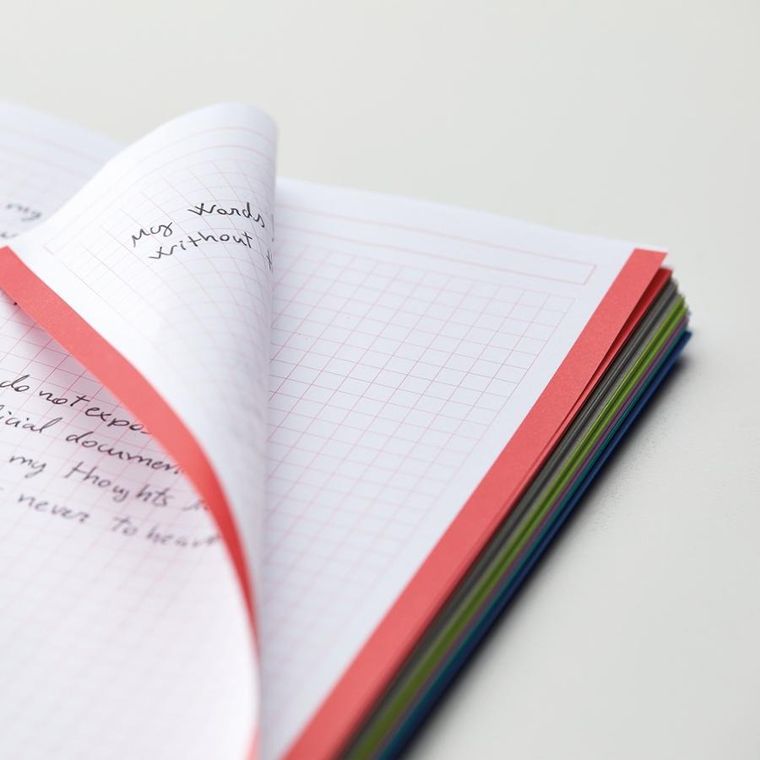 my
My words
without
do not expos
icial documen
my thoughts
never to heart